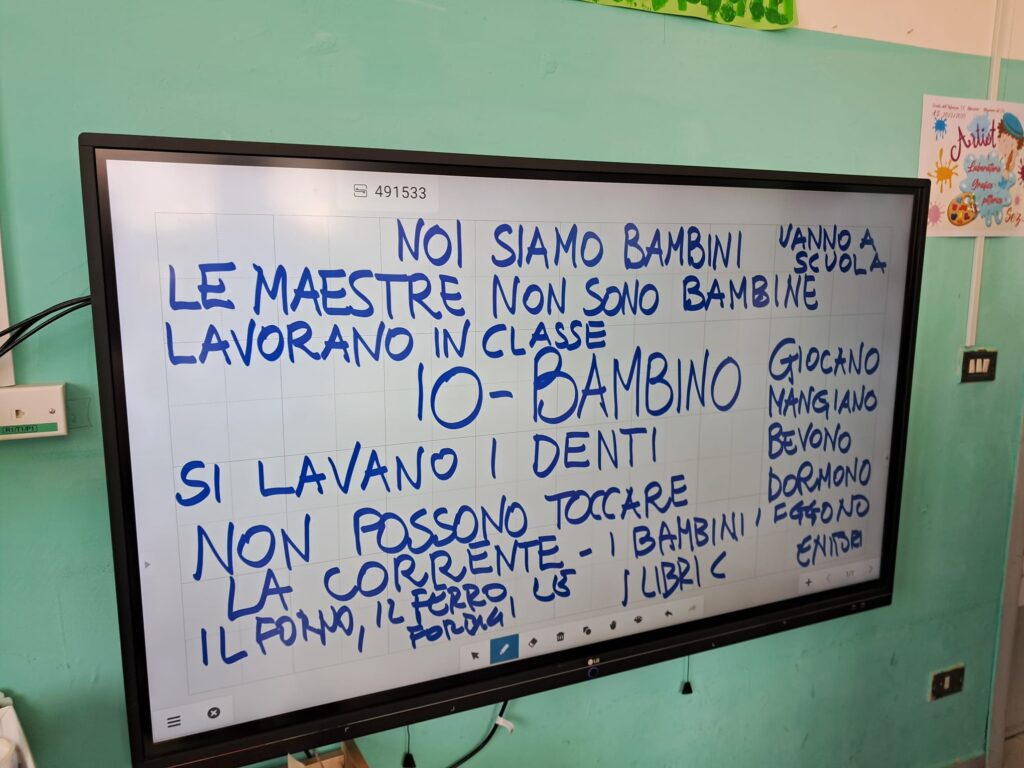 491533
NOI SIAMO BAMBINI
VANNO A
SCUOLA
LE MAESTRE NON SONO BAMBINE
LAVORANO IN CLASSE
IO-BAMBINO
GIOCANO
MANGIANO
BEVONO
DORMONO
SI LAVANO I DENTI
NON POSSONO TOCCARE
LA CORRENTE - I BAMBINI
IL FORNO, IL FERRO LE
FORBICI
I LIBRI
1/1
LG
Artist
Laboratorio
Grafico
pittorico
Sez